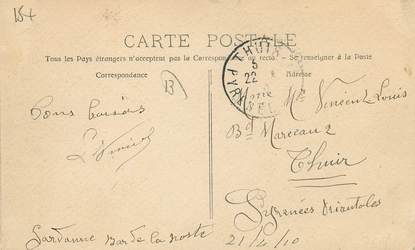 15+
CARTE POSTALE
Tous les Pays étrangers n'acceptent pas la Correspondance au recto. - Se renseigner à la Poste
Correspondance
Adresse
B
THUIR
5
22
PYR
Bons baisers
L Vincent
Mme Vincent Louis
Bd Marceau 2
Thuir
Pyrénées Orientales
Gardanne Bar de la Poste
21/4/10